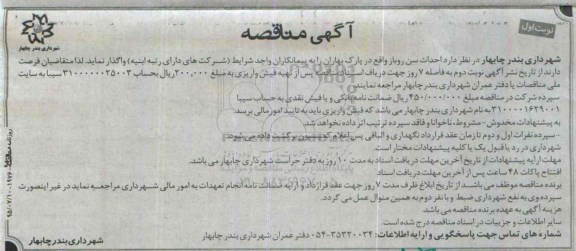 نوبت اول
آگهی مناقصه
شهرداری بندر چابهار
شهرداری بندر چابهار در نظر دارد احداث سن روباز واقع در پارک بهاران را به پیمانکاران واجد شرایط (شرکت های دارای رتبه ابنیه) واگذار نماید. لذا متقاضیان فرصت
دارند از تاریخ نشر آگهی نوبت دوم به فاصله ۷ روز جهت دریافت اسناد پس از تهیه فیش واریزی به مبلغ ۲۰۰,۰۰۰ ریال بحساب ۳۱۰۰۰۰۰۰۲۵۰۰۳ سیبا به سایت
ملی مناقصات یا دفتر عمران شهرداری چابهار مراجعه نمایند.
سپرده شرکت در مناقصه مبلغ ۴۵۰/۰۰۰/۰۰۰ ریال ضمانت نامه بانکی و یا فیش نقدی به حساب سیبا
۳۱۰۰۰۰۱۶۲۹۰۰۱ به نام شهرداری چابهار می باشد که فیش واریزی باید به تایید امور مالی برسد.
به پیشنهادات مخدوش - مشروط، ناخوانا و فاقد سپرده ترتیب اثر داده نخواهد شد.
- سپرده نفرات اول و دوم تا زمان عقد قرارداد نگهداری و الباقی پس از اعلام کمیسیون برگشت داده می شود.
شهرداری در رد یا قبول یک یا کلیه پیشنهادات مختار است.
مهلت ارایه پیشنهادات از تاریخ آخرین مهلت دریافت اسناد به مدت ۱۰ روز به دفتر حراست شهرداری چابهار می باشد.
افتتاح پاکات ۴۸ ساعت پس از آخرین مهلت دریافت اسناد
برنده مناقصه موظف می باشد از تاریخ ابلاغ ظرف مدت ۷ روز جهت عقد قرارداد و ارایه ضمانت نامه انجام تعهدات به امور مالی شهرداری مراجعه نماید در غیر اینصورت
سپرده وی به نفع شهرداری ضبط و با نفر دوم به همین منوال عمل می گردد.
هزینه آگهی به عهده برنده مناقصه می باشد.
سایر اطلاعات و جزییات در اسناد مناقصه درج شده است.
شماره های تماس جهت پاسخگویی و ارایه اطلاعات: ۳۴-۰۵۴۳۵۳۲۰۰ دفتر عمران شهرداری چابهار
شهرداری بندر چابهار